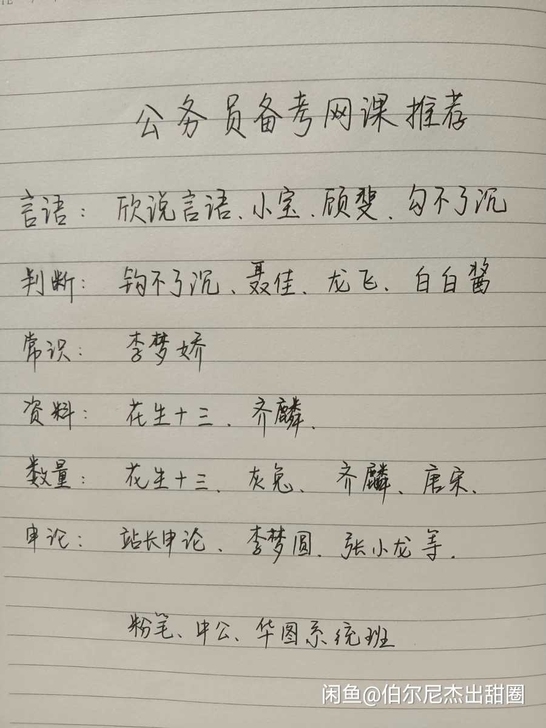 公务员备考网课推荐
言语：欣说言语、小宝、顾斐、勾不了沉
判断：钩不了沉、聂佳、龙飞、白白酱
常识：李梦娇
资料：花生十三、齐麟.
数量：花生十三、灰兔、齐麟、唐宋.
申论：站长申论、李梦圆、张小龙等.
粉笔、中公、华图系统班
闲鱼@伯尔尼杰出甜圈